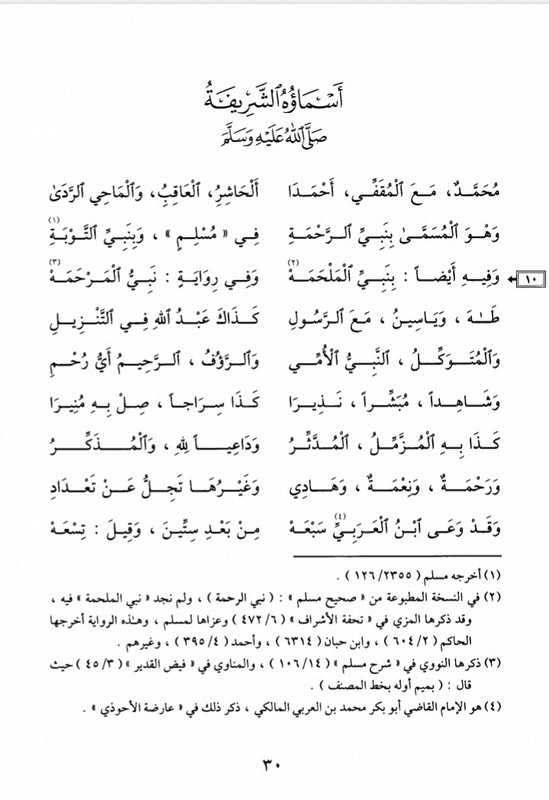 أَسْمَاؤُهُ ٱلشَّرِيفَةُ
صَلَّى ٱللَّهُ عَلَيْهِ وَسَلَّمَ
مُحَمَّدٌ، مَعَ ٱلْمُقَفِّي، أَحْمَدَا أَلْحَاشِرُ، ٱلْعَاقِبُ، وَٱلْمَاحِي ٱلرَّدَىٰ
وَهْوَ ٱلْمُسَمَّىٰ بِنَبِيِّ ٱلرَّحْمَةِ فِي « مُسْلِمٍ » ، وَبِنَبِيِّ ٱلتَّوْبَةِ (١)
١٠ وَفِيهِ أَيْضاً : بِنَبِيِّ ٱلْمَلْحَمَهْ (٢) وَفِي رِوَايَةٍ : نَبِيُّ ٱلْمَرْحَمَهْ (٣)
طَهَ ، وَيَاسِينُ ، مَعَ ٱلرَّسُولِ كَذَاكَ عَبْدُ ٱللهِ فِي ٱلتَّنْزِيلِ
وَٱلْمُتَوَكِّلُ ، ٱلنَّبِيُّ ٱلْأُمِّي وَٱلرَّؤُفُ ، ٱلرَّحِيمُ أَيُّ رُحْمِ
وَشَاهِداً ، مُبَشِّراً ، نَذِيرَا كَذَا سِرَاجاً ، صِلْ بِهِ مُنِيرَا
كَذَا بِهِ ٱلْمُزَّمِّلُ ، ٱلْمُدَّثِّرُ وَدَاعِياً لِلهِ ، وَٱلْمُذَكِّرُ
وَرَحْمَةٌ ، وَنِعْمَةٌ ، وَهَادِي وَغَيْرُهَا تَجِلُّ عَنْ تَعْدَادِ
وَقَدْ وَعَى ٱبْنُ ٱلْعَرَبِيِّ (٤) سَبْعَهْ مِنْ بَعْدِ سِتِّينَ ، وَقِيلَ : تِسْعَهْ
(١) أخرجه مسلم ( ١٢٦/٢٣٥٥ ) .
(٢) في النسخة المطبوعة من « صحيح مسلم » : ( نبي الرحمة ) ، ولم نجد « نبي الملحمة » فيه ،
وقد ذكرها المزي في « تحفة الأشراف » ( ٤٧٢/٦ ) وعزاها لمسلم ، وهذه الرواية أخرجها
الحاكم ( ٦٠٤/٢ ) ، وابن حبان ( ٦٣١٤ ) ، وأحمد ( ٣٩٥/٤ ) ، وغيرهم .
(٣) ذكرها النووي في « شرح مسلم » ( ١٠٦/١٤ ) ، والمناوي في « فيض القدير » ( ٤٥/٣ ) حيث
قال : ( بميم أوله بخط المصنف ) .
(٤) هو الإمام القاضي أبو بكر محمد بن العربي المالكي ، ذكر ذلك في « عارضة الأحوذي » .
٣٠